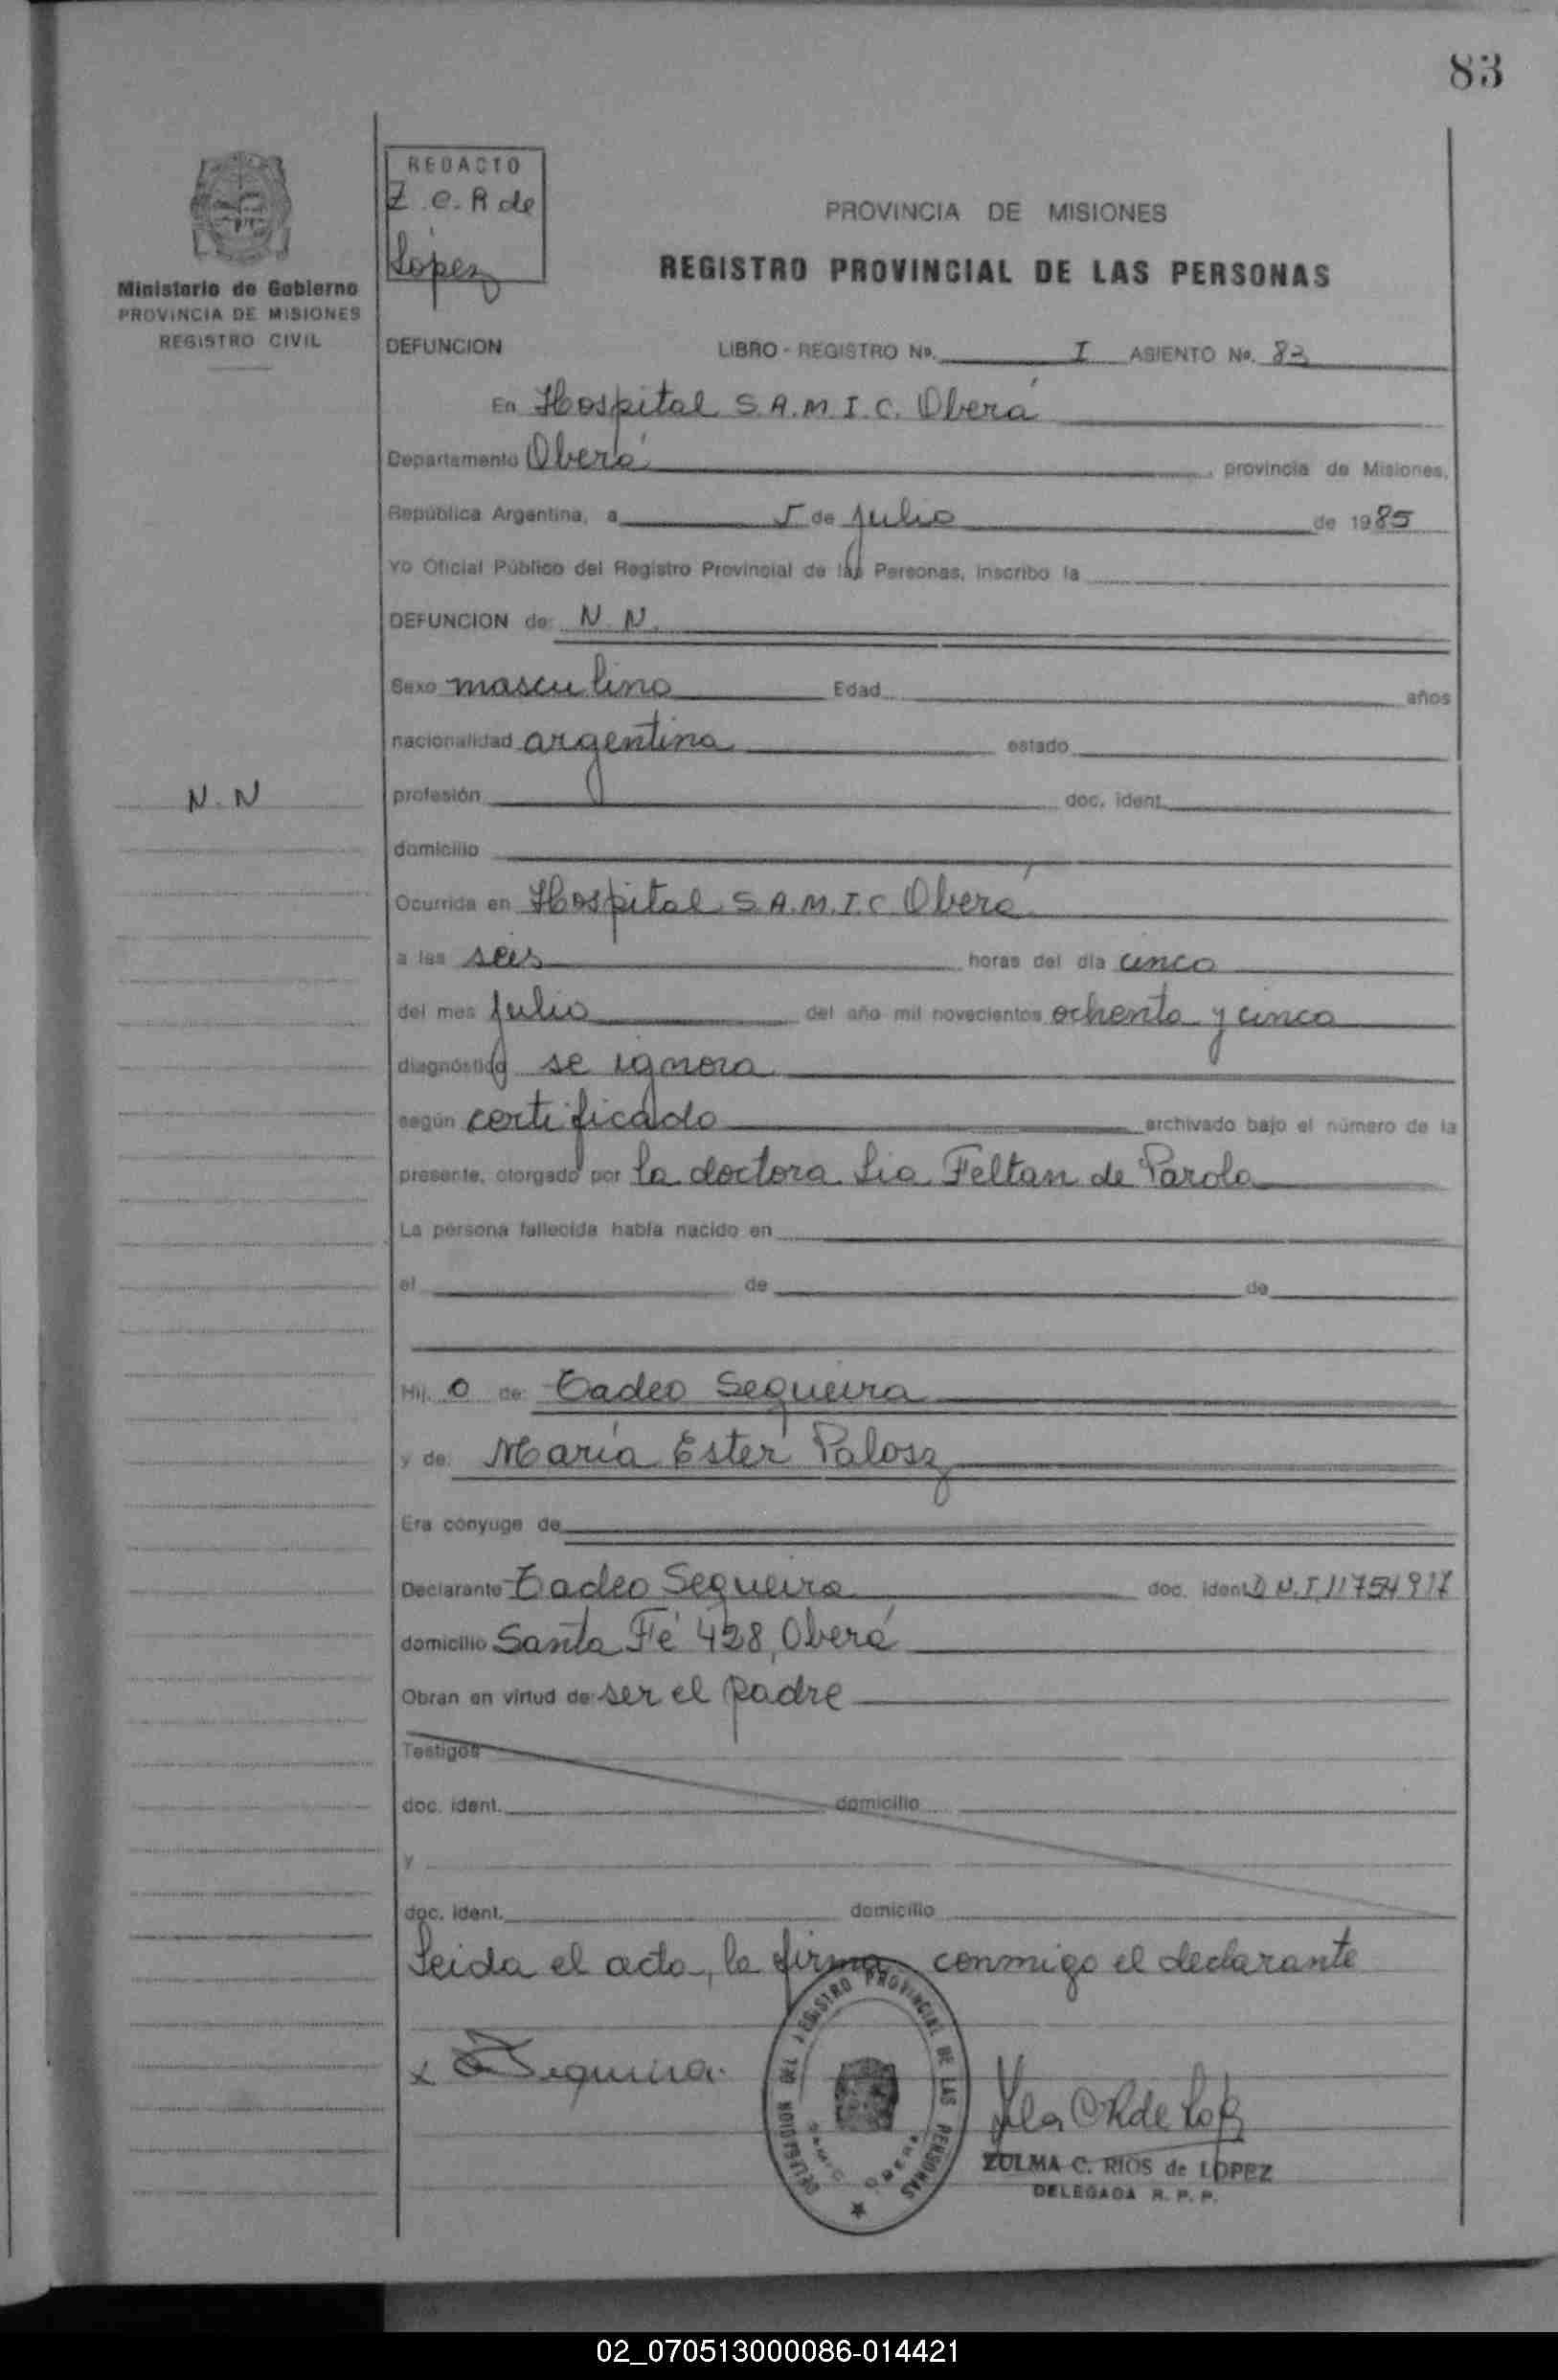 83
REDACTO
Z. C. R de
López
Ministerio de Gobierno
PROVINCIA DE MISIONES
REGISTRO CIVIL
PROVINCIA DE MISIONES
REGISTRO PROVINCIAL DE LAS PERSONAS
DEFUNCION LIBRO - REGISTRO Nº. I ASIENTO Nº. 83
En Hospital S.A.M.I.C. Oberá
Departamento Oberá, provincia de Misiones,
República Argentina, a 5 de julio de 1985
Yo Oficial Público del Registro Provincial de las Personas, inscribo la
DEFUNCION de: N. N.
Sexo masculino Edad años
nacionalidad argentina estado
N. N
profesión doc. ident.
domicilio
Ocurrida en Hospital S.A.M.I.C Oberá
a las seis horas del día cinco
del mes julio del año mil novecientos ochenta y cinco
diagnóstico se ignora
según certificado archivado bajo el número de la
presente, otorgado por la doctora Lia Feltan de Parola
La persona fallecida había nacido en
el de de
Hij o de: Tadeo Sequeira
y de: María Ester Palosz
Era cónyuge de
Declarante Tadeo Sequeira doc. ident. D.N.I 11754917
domicilio Santa Fé 428, Oberá
Obran en virtud de: ser el padre
Testigos
doc. ident. domicilio
y
doc. ident. domicilio
Leida el acta, la firma conmigo el declarante
x Sequeira
DELEGACION DEL REGISTRO PROVINCIAL DE LAS PERSONAS
SAMIC OBERA
ZULMA C. RIOS de LOPEZ
DELEGADA R. P. P.
02_070513000086-014421